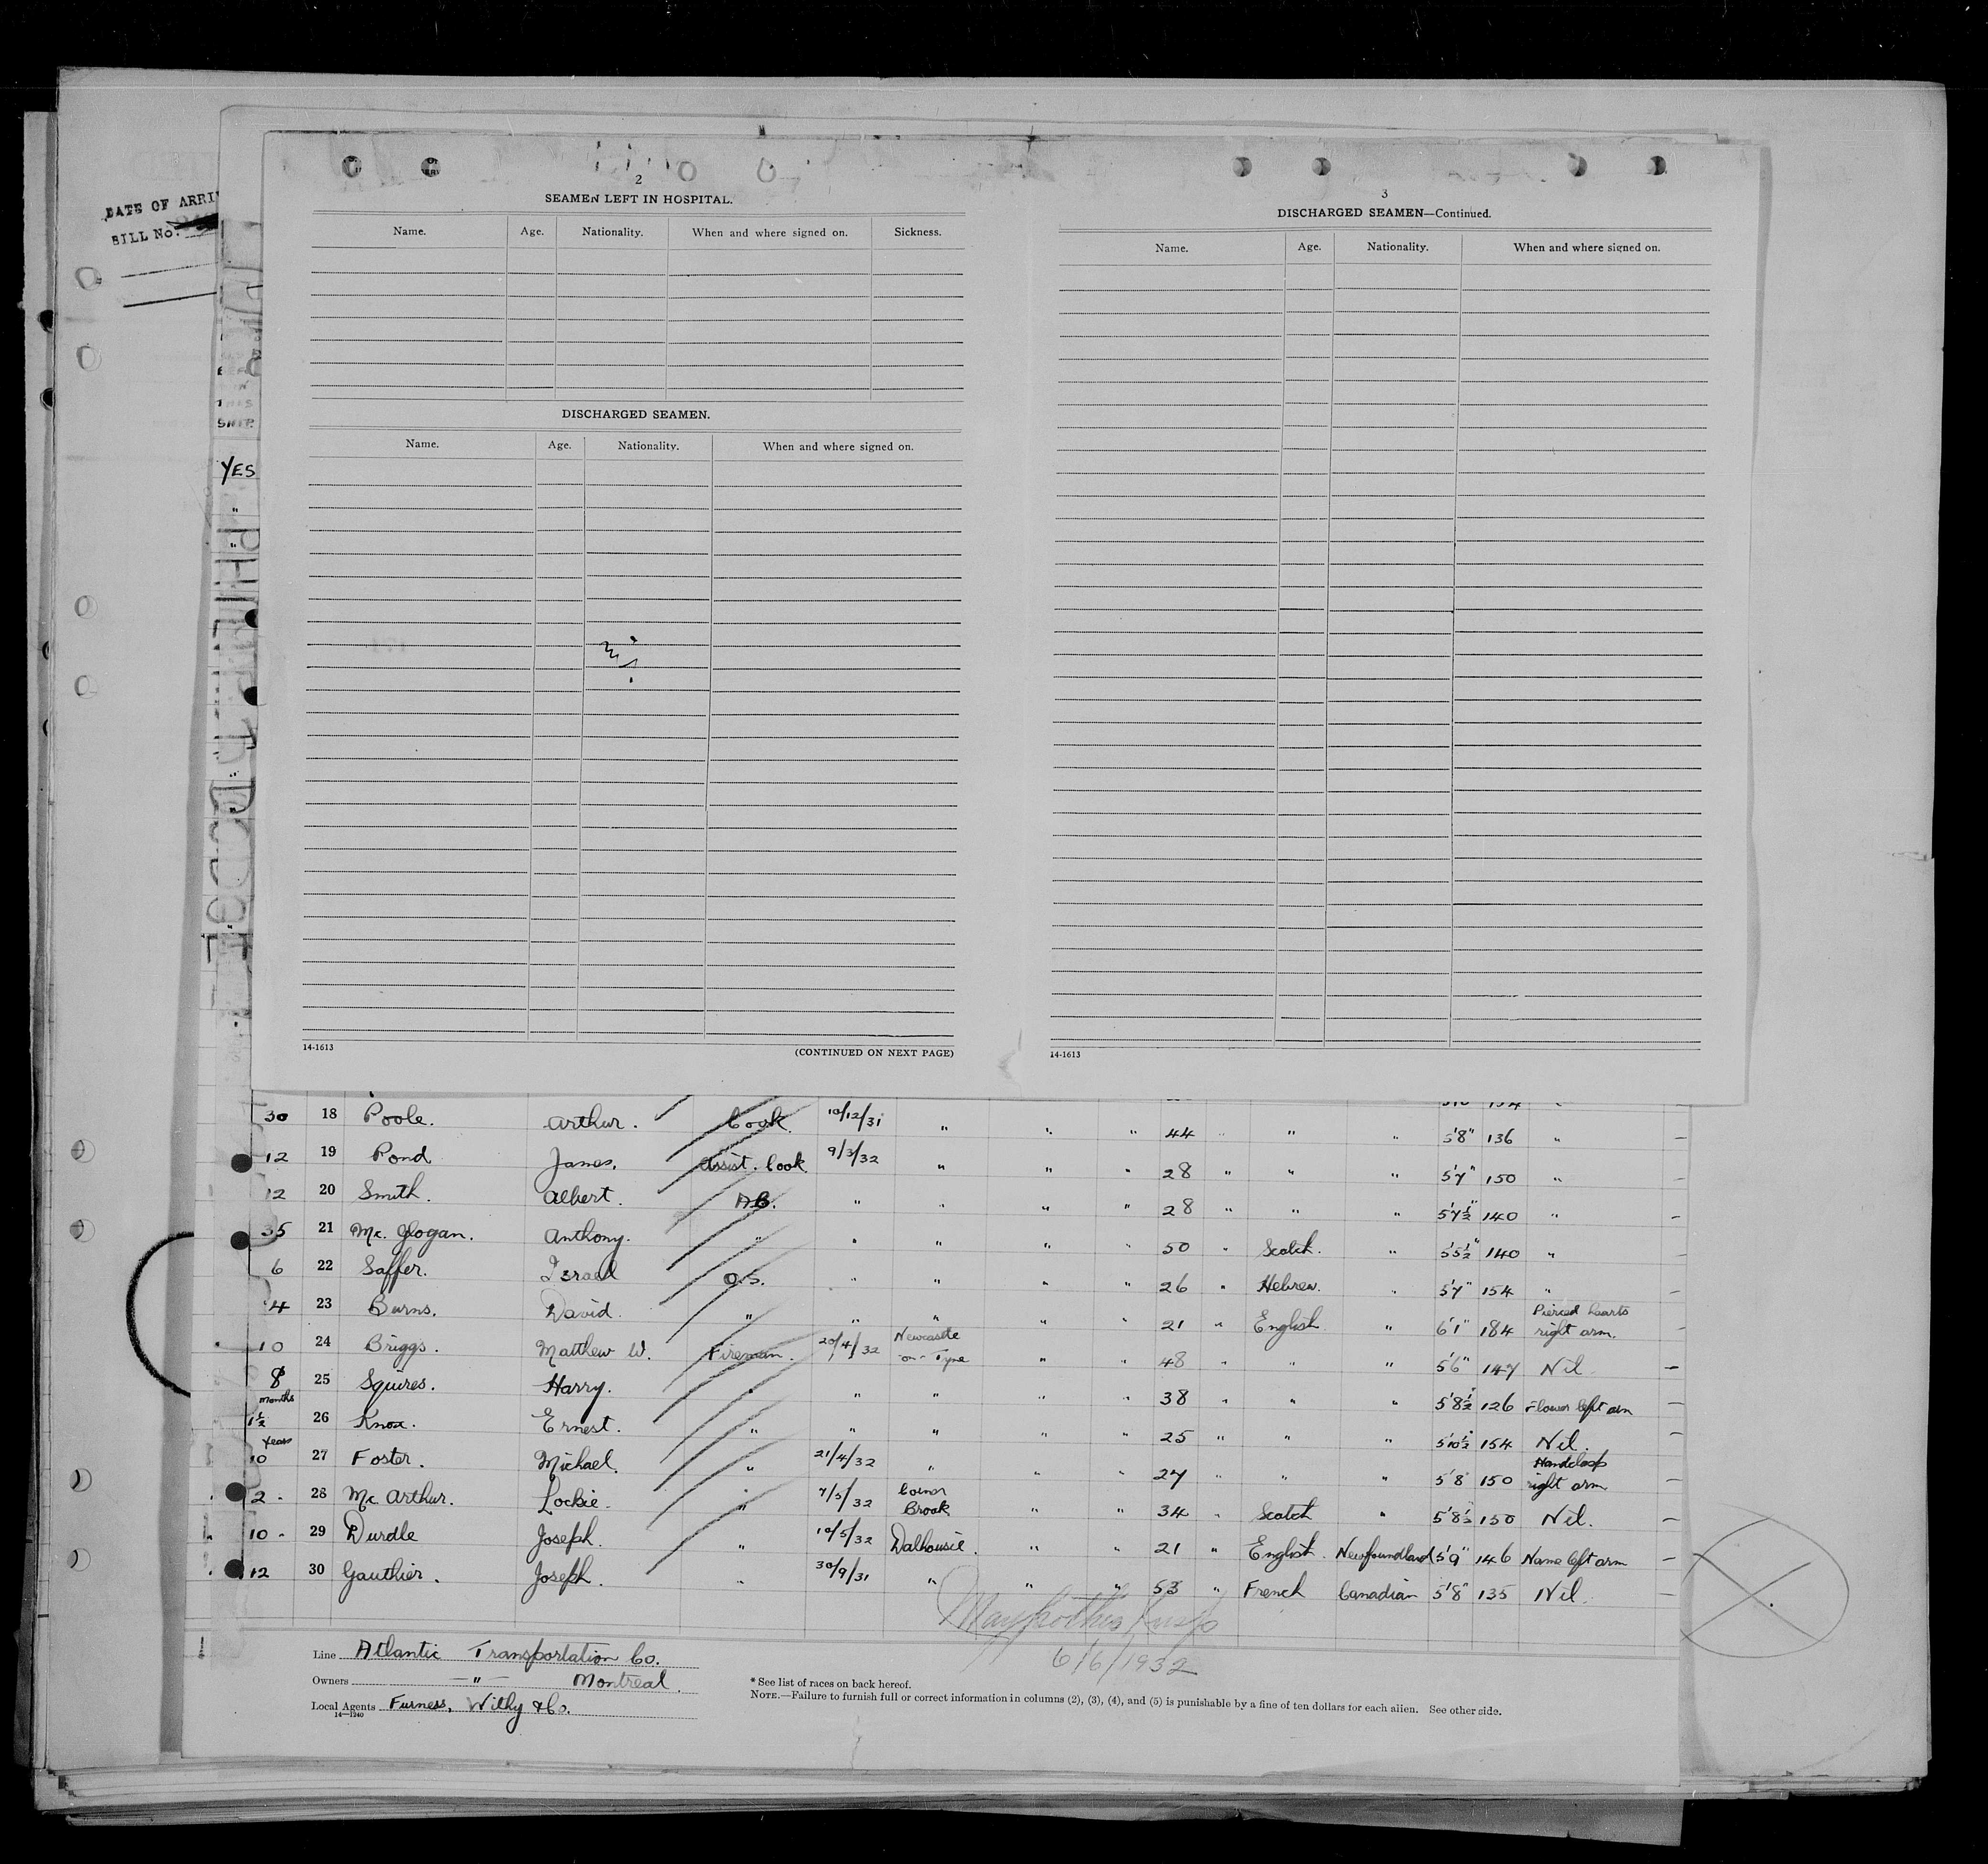 DATE OF ARRI
BILL No.
YES
2
SEAMEN LEFT IN HOSPITAL.
Name. Age. Nationality. When and where signed on. Sickness.
DISCHARGED SEAMEN.
Name. Age. Nationality. When and where signed on.
14-1613 (CONTINUED ON NEXT PAGE)
3
DISCHARGED SEAMEN—Continued.
Name. Age. Nationality. When and where signed on.
14-1613
30 18 Poole. Arthur. Cook. 10/12/31 " " " 44 " " " 5'8" 136 " —
12 19 Pond James. Assist. Cook 9/3/32 " " " 28 " " " 5'7" 150 " —
12 20 Smith. Albert. A.B. " " " " 28 " " " 5'7½" 140 " —
35 21 Mc. Glogan. Anthony. " " " " " 50 " Scotch. " 5'5½" 140 " —
6 22 Saffer. Israel O.S. " " " " 26 " Hebrew. " 5'7" 154 " —
4 23 Burns. David. " " " " " 21 " English. " 6'1" 184 Pierced hearts right arm.
10 24 Briggs. Matthew W. Fireman. 20/4/32 Newcastle -on-Tyne " " 48 " " " 5'6" 147 Nil —
8 months 25 Squires. Harry. " " " " " 38 " " " 5'8½" 126 Flower left arm —
1½ years 26 Knox. Ernest. " " " " " 25 " " " 5'10½" 154 Nil. —
10 27 Foster. Michael. " 21/4/32 " " " 27 " " " 5'8" 150 Handclasp right arm
2 " 28 Mc Arthur. Lockie. " 7/5/32 Corner Brook " " 34 " Scotch " 5'8½" 150 Nil. —
10 " 29 Durdle Joseph. " 10/5/32 Dalhousie. " " 21 " English. Newfoundland 5'9" 146 Name left arm —
12 30 Gauthier. Joseph. " 30/9/31 " " " 53 " French Canadian 5'8" 135 Nil. —
6/6/1932
Line Atlantic Transportation Co.
Owners —"— Montreal.
Local Agents Furness, Withy & Co.
14—1240
* See list of races on back hereof.
NOTE.—Failure to furnish full or correct information in columns (2), (3), (4), and (5) is punishable by a fine of ten dollars for each alien. See other side.